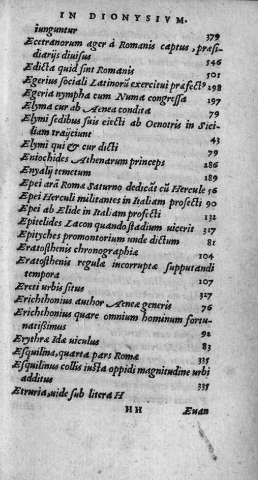 IN DIONYSIVM.
iunguntur 379
Ecetranorum ager à Romanis captus, præsi-
diarijs diuisus 546
Edicta quid sint Romanis 501
Egerius sociali Latinorū exercitui præfectꝰ 198
Egeria nympha cum Numa congressa 197
Elyma cur ab Aenea condita 79
Elymi sedibus suis eiecti ab Oenotris in Sici-
liam traijciunt 43
Elymi qui & cur dicti 79
Entochides Athenarum princeps 286
Enyalij temetum 189
Epei arā Roma Saturno dedicāt cū Hercule 56
Epei Herculi militantes in Italiam profecti 90
Epei ab Elide in Italiam profecti 132
Epitelides Lacon quando stadium uicerit 317
Epityches promontorium unde dictum 81
Eratosthenis chronographiæ 104
Eratosthenis regulæ incorruptæ supputandi
tempora 107
Ereti urbis situs 327
Erichthonius author Aeneæ generis 76
Erichthonius quare omnium hominum fortu-
natissimus 92
Erythræ Idæ uiculus 83
Esquilina, quarta pars Romæ 335
Esquilinus collis iuxta oppidi magnitudine urbi
additus 335
Etruria, uide sub litera H
HH Euan